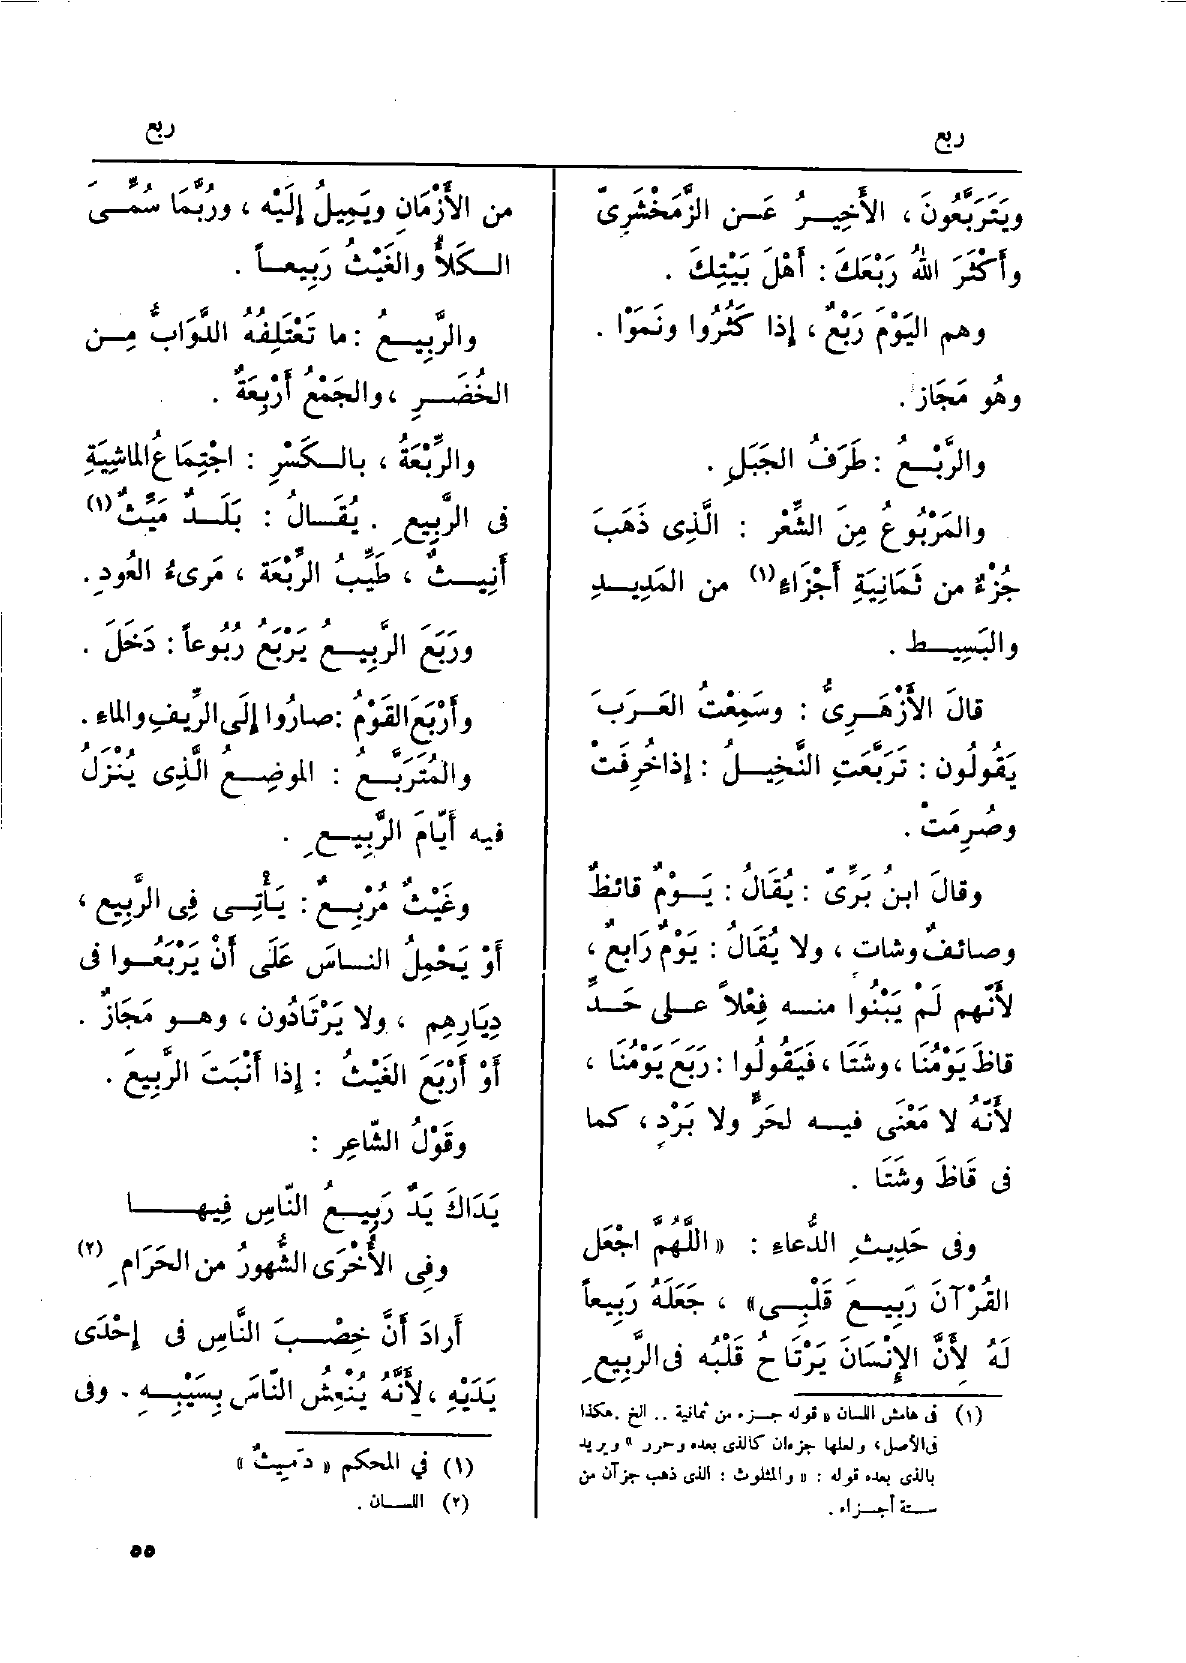 ربع
وَيَتَرَبَّعُونَ، الأَخِيرُ عَن الزَّمَخْشَرِىّ
وأَكْثَرَ اللهُ رَبْعَكَ: أَهْلَ بَيْتِكَ .
وهم اليَوْمَ رَبْعٌ، إذا كَثُرُوا ونَمَوْا .
وهُو مَجَاز .
والرَّبْعُ : طَرَفُ الجَبَلِ .
والمَرْبُوعُ مِنَ الشِّعْر : الَّذِى ذَهَبَ
جُزْءٌ من ثَمَانِيَةِ أَجْزَاءٍ(١) من المَدِيدِ
والبَسِيط .
قالَ الأَزْهَرِىُّ : وسَمِعْتُ العَرَبَ
يَقُولُون : تَرَبَّعَتِ النَّخِيلُ : إذا خُرِفَتْ
وصُرِمَتْ .
وقالَ ابنُ بَرِّىّ : يُقَالُ : يَوْمٌ قائظٌ
وصائفٌ وشات ، ولا يُقَالُ : يَوْمٌ رَابِعٌ ،
لأَنّهم لَمْ يَبْنُوا منه فِعْلاً على حَدِّ
قاظَ يَوْمُنَا ، وشَتَا ، فيَقُولُوا : رَبَعَ يَوْمُنَا ،
لأَنّهُ لا مَعْنَى فيه لحَرٍّ ولا بَرْدٍ ، كما
فى قَاظَ وشَتَا .
وفى حَدِيثِ الدُّعاءِ : « اللَّهُمَّ اجْعَل
القُرْآنَ رَبِيعَ قَلْبِى» ، جَعَلَهُ رَبِيعاً
لَهُ لِأَنَّ الإنْسَانَ يَرْتَاحُ قَلْبُه فى الرَّبِيعِ
(١) فى هامش اللسان « قوله جزء من ثمانية .. الخ . هكذا
فى الأصل ، ولعلها جزءان كالذى بعده وحرر » ويريد
بالذى بعده قوله : « والمثلوث : الذى ذهب جزآن من
ستة أجزاء .
ربع
من الأَزْمَانِ ويَمِيلُ إلَيْه ، ورُبَّمَا سُمِّىَ
الكَلأُ والغَيْثُ رَبِيعاً .
والرَّبِيعُ : ما تَعْتَلِفُهُ الدَّوَابُّ مِن
الخُضَرِ ، والجَمْعُ أَرْبِعَةٌ .
والرِّبْعَةُ ، بالكَسْرِ : اجْتِمَاعُ الماشِيَةِ
فى الرَّبِيعِ . يُقَالُ : بَلَدٌ مَيِّثٌ(١)
أَنِيثٌ ، طَيِّبُ الرِّبْعَة ، مَرِىءُ العُودِ .
ورَبَعَ الرَّبِيعُ يَرْبَعُ رُبُوعاً : دَخَلَ .
وأَرْبَعَ القَوْمُ : صارُوا إلَى الرِّيفِ والماءِ .
والمُتَرَبَّعُ : الموضِعُ الَّذِى يُنْزَلُ
فيه أَيّامَ الرَّبِيعِ .
وغَيْثٌ مُرْبِعٌ : يَأْتِى فِى الرَّبِيعِ ،
أَوْ يَحْمِلُ الناسَ عَلَى أَنْ يَرْبَعُوا فى
دِيَارِهِم ، ولا يَرْتَادُون ، وهو مَجَازٌ .
أَوْ أَرْبَعَ الغَيْثُ : إذا أَنْبَتَ الرَّبِيعَ .
وقَوْلُ الشّاعِر :
يَدَاكَ يَدٌ رَبِيعُ النّاسِ فِيهَا
وفِى الأُخْرَى الشُّهورُ من الحَرَامِ (٢)
أَرادَ أَنَّ خِصْبَ النَّاسِ فى إحْدَى
يَدَيْهِ ، لأَنَّهُ يُنْعِشُ النّاسَ بِسَيْبِهِ . وفى
(١) في المحكم « دَمِيثٌ »
(٢) اللسان .
٥٥